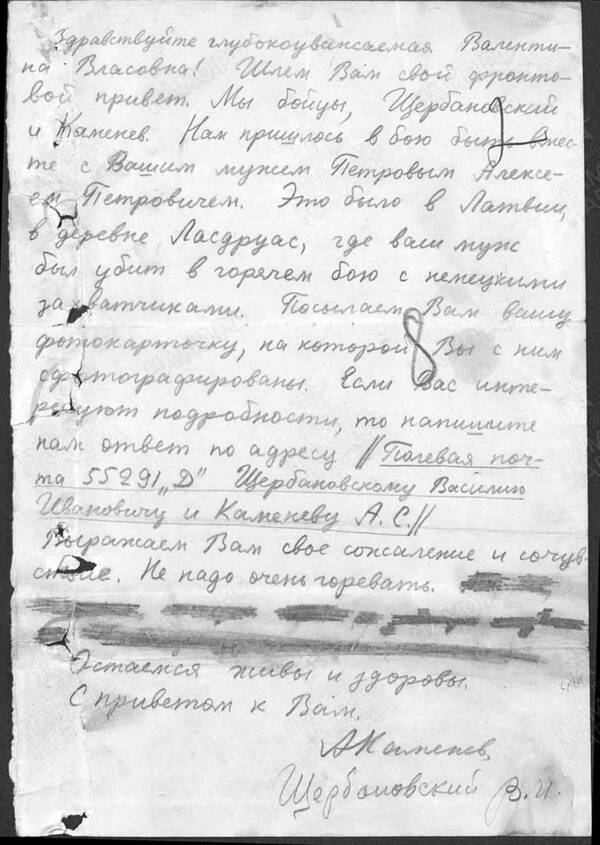 Здравствуйте глубокоуважаемая Валенти-
на Власовна! Шлем Вам свой фронто-
вой привет. Мы бойцы, Щербановский
и Каменев. Нам пришлось в бою быть вмес-
те с Вашим мужем Петровым Алексе-
ем Петровичем. Это было в Латвии,
в деревне Ласдруас, где ваш муж
был убит в горячем бою с немецкими
захватчиками. Посылаем Вам вашу
фотокарточку, на которой Вы с ним
сфотографированы. Если Вас инте-
ресуют подробности, то напишите
нам ответ по адресу // Полевая поч-
та 55291 „Д" Щербановскому Василию
Ивановичу и Каменеву А. С. //
Выражаем Вам свое сожаление и сочув-
ствие. Не надо очень горевать.
Остаемся живы и здоровы.
С приветом к Вам.
А Каменев,
Щербановский В. И.
8